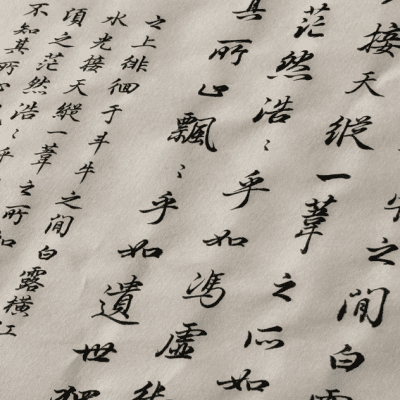 之閒白露
接天縱一葦之所如
茫然浩〻乎如馮虛御
其所止飄〻乎如遺世獨
之上徘徊于斗牛之閒白露橫江
水光接天縱一葦之所如
頃之茫然浩〻乎
不知其所止